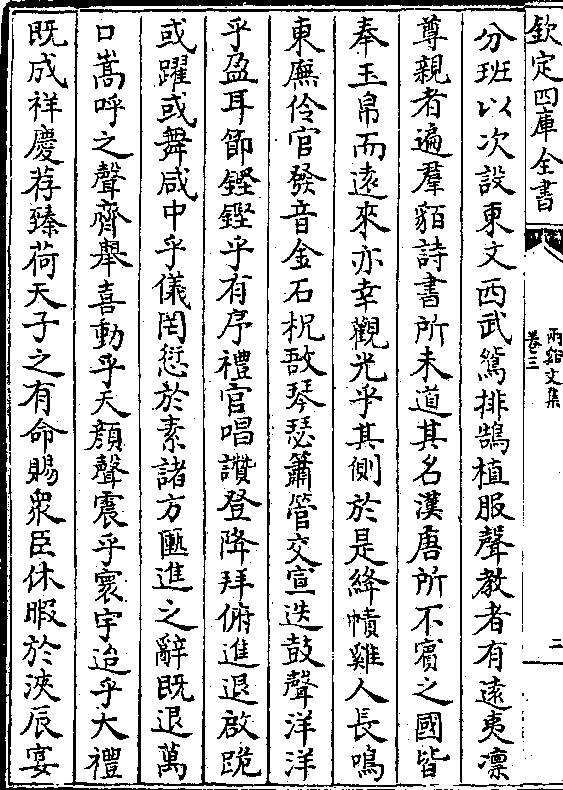 欽定四庫全書
兩谿文集
卷三
二
分班以次設東文西武鵷排鵠植服聲教者有遠夷凛
尊親者遍羣貊詩書所未道其名漢唐所不賔之國皆
奉玉帛而遠來亦幸觀光乎其側於是絳幘雞人長鳴
東廡伶官發音金石柷敔琴瑟簫管交宣迭鼓聲洋洋
乎盈耳節鏗鏗乎有序禮官唱讚登降拜俯進退啟跪
或躍或舞咸中乎儀罔愆於素諸方匭進之辭既退萬
口嵩呼之聲齊舉喜動乎天顔聲震乎寰宇迨乎大禮
既成祥慶荐臻荷天子之有命賜衆臣休暇於浹辰宴